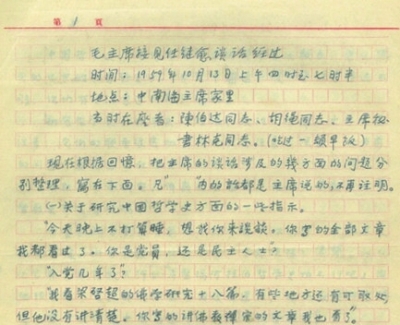 第 1 頁
毛主席接见任继愈谈话经过
时间：1959年10月13日上午四时至七时半
地点：中南海主席家里
当时在座者：陈伯达同志、胡绳同志、主席秘
书林克同志。（吃过一顿早饭）
现在根据回忆，把主席的谈话涉及的几方面的问题分
别整理，写在下面。凡“ ”内的话都是主席说的，不再注明。
(一)关于研究中国哲学史方面的一些指示。
“今天晚上不打算睡，想找你来谈谈。你写的全部文章
我都看过了。你是党员，还是民主人士？”
“入党几年了？”
“我看梁启超的佛学研究十八篇，有些地方还有可取处，
但他没有讲清楚。你写的讲佛教禅宗的文章我也看了。